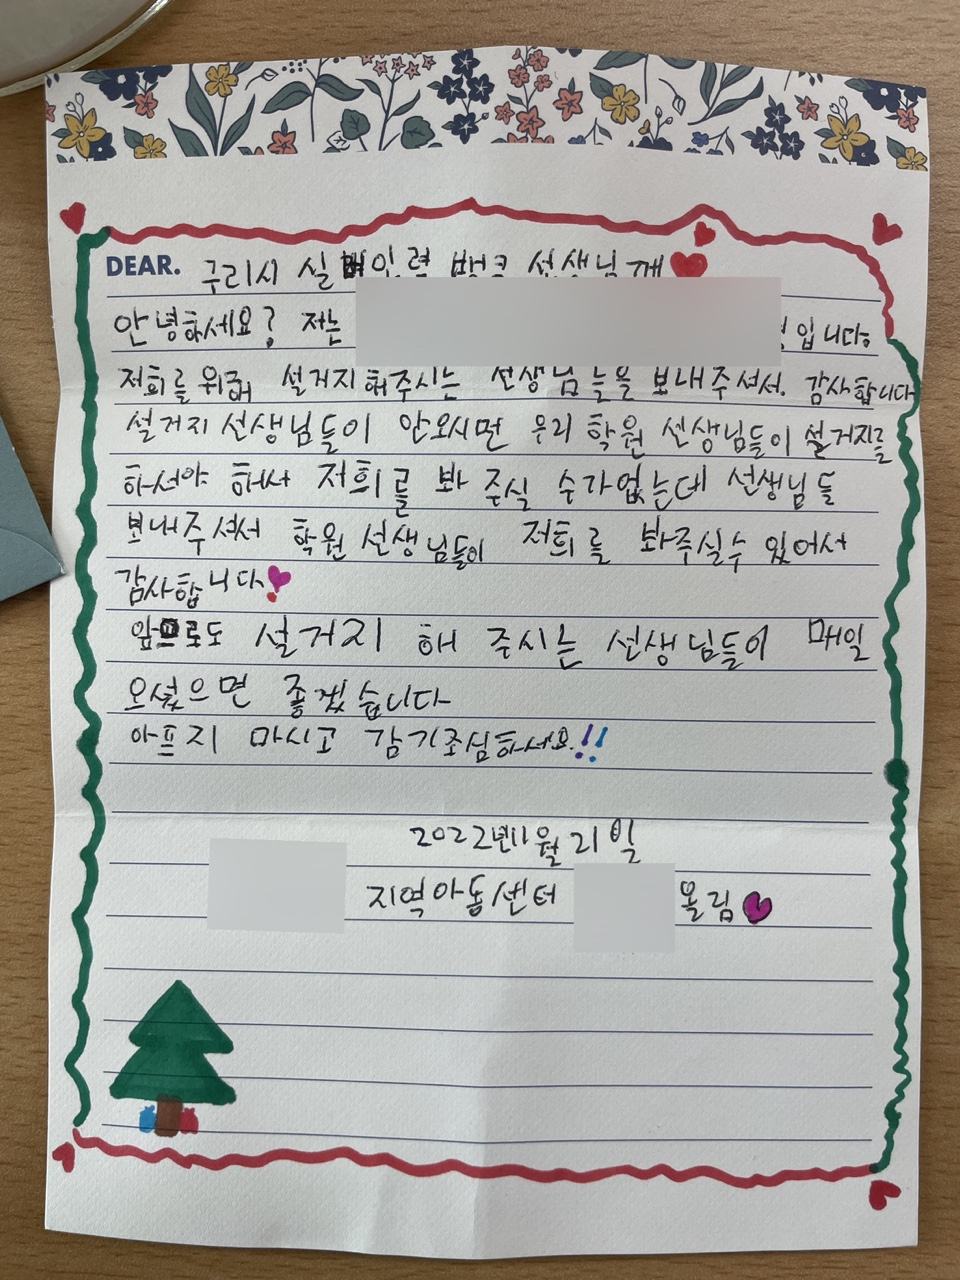 DEAR. 구리시 실버인력 뱅크 선생님께
안녕하세요? 저는 입니다.
저희를 위해 설거지 해주시는 선생님들을 보내주셔서. 감사합니다
설거지 선생님들이 안오시면 우리 학원 선생님들이 설거지를
하셔야 해서 저희를 봐 주실 수가없는데 선생님들
보내주셔서 학원 선생님들이 저희를 봐주실수 있어서
감사합니다
앞으로도 설거지 해 주시는 선생님들이 매일
오셨으면 좋겠습니다
아프지 마시고 감기조심하세요.!!
2022년11월21일
지역아동센터 올림